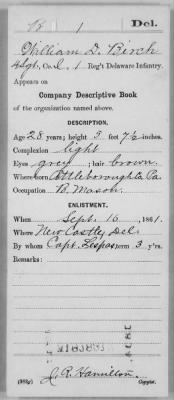 B 1 Del.
William D. Birch
4 Sgt., Co. I, 1 Reg't Delaware Infantry.
Appears on
Company Descriptive Book
of the organization named above.
DESCRIPTION.
Age 28 years; height 5 feet 7½ inches.
Complexion light
Eyes grey; hair brown.
Where born Attleborough Pa.
Occupation B. Mason.
ENLISTMENT.
When Sept. 16, 1861.
Where New Castle, Del.
By whom Capt. term 3 y'rs.
Remarks:
J. R. Hamilton
Copyist.